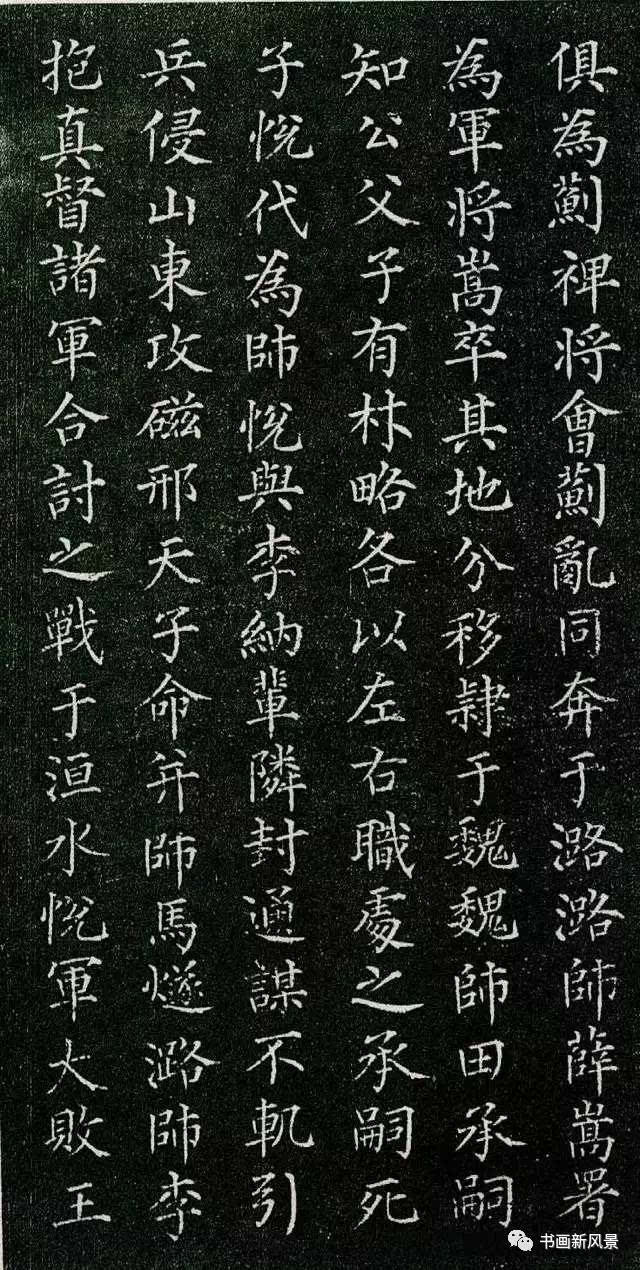 俱為薊裨將會薊亂同奔于潞潞帥薛嵩署
為軍將嵩卒其地分移隸于魏魏帥田承嗣
知公父子有材略各以左右職處之承嗣死
子悅代為帥悅與李納輩隣封通謀不軌引
兵侵山東攻磁邢天子命并帥馬燧潞帥李
抱真督諸軍合討之戰于洹水悅軍大敗王
书画新风景